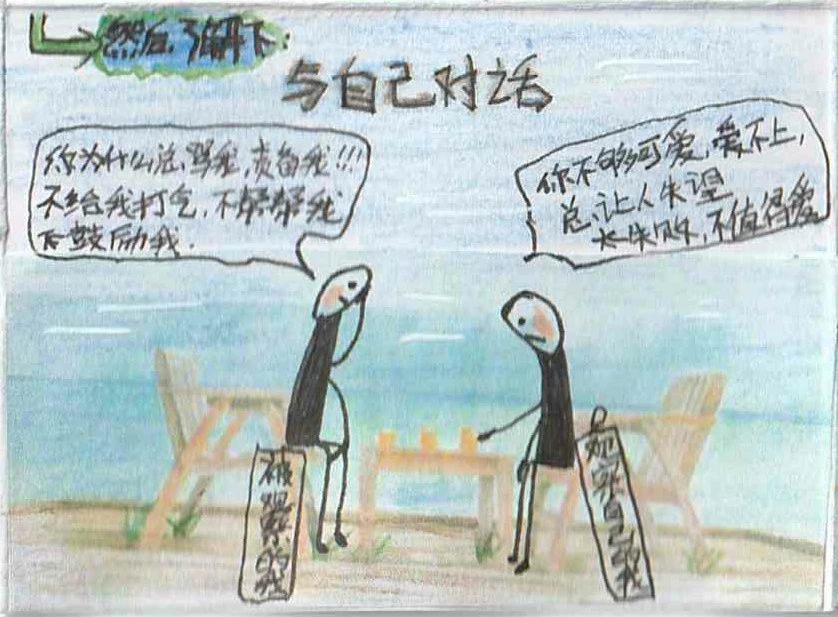 然后
与自己对话
你为什么总骂我,责备我!!!
不给我打气,不帮帮我
不鼓励我.
你不够可爱,爱不上,
总让人失望
太失败,不值得爱
被观察的我
观察自己的我